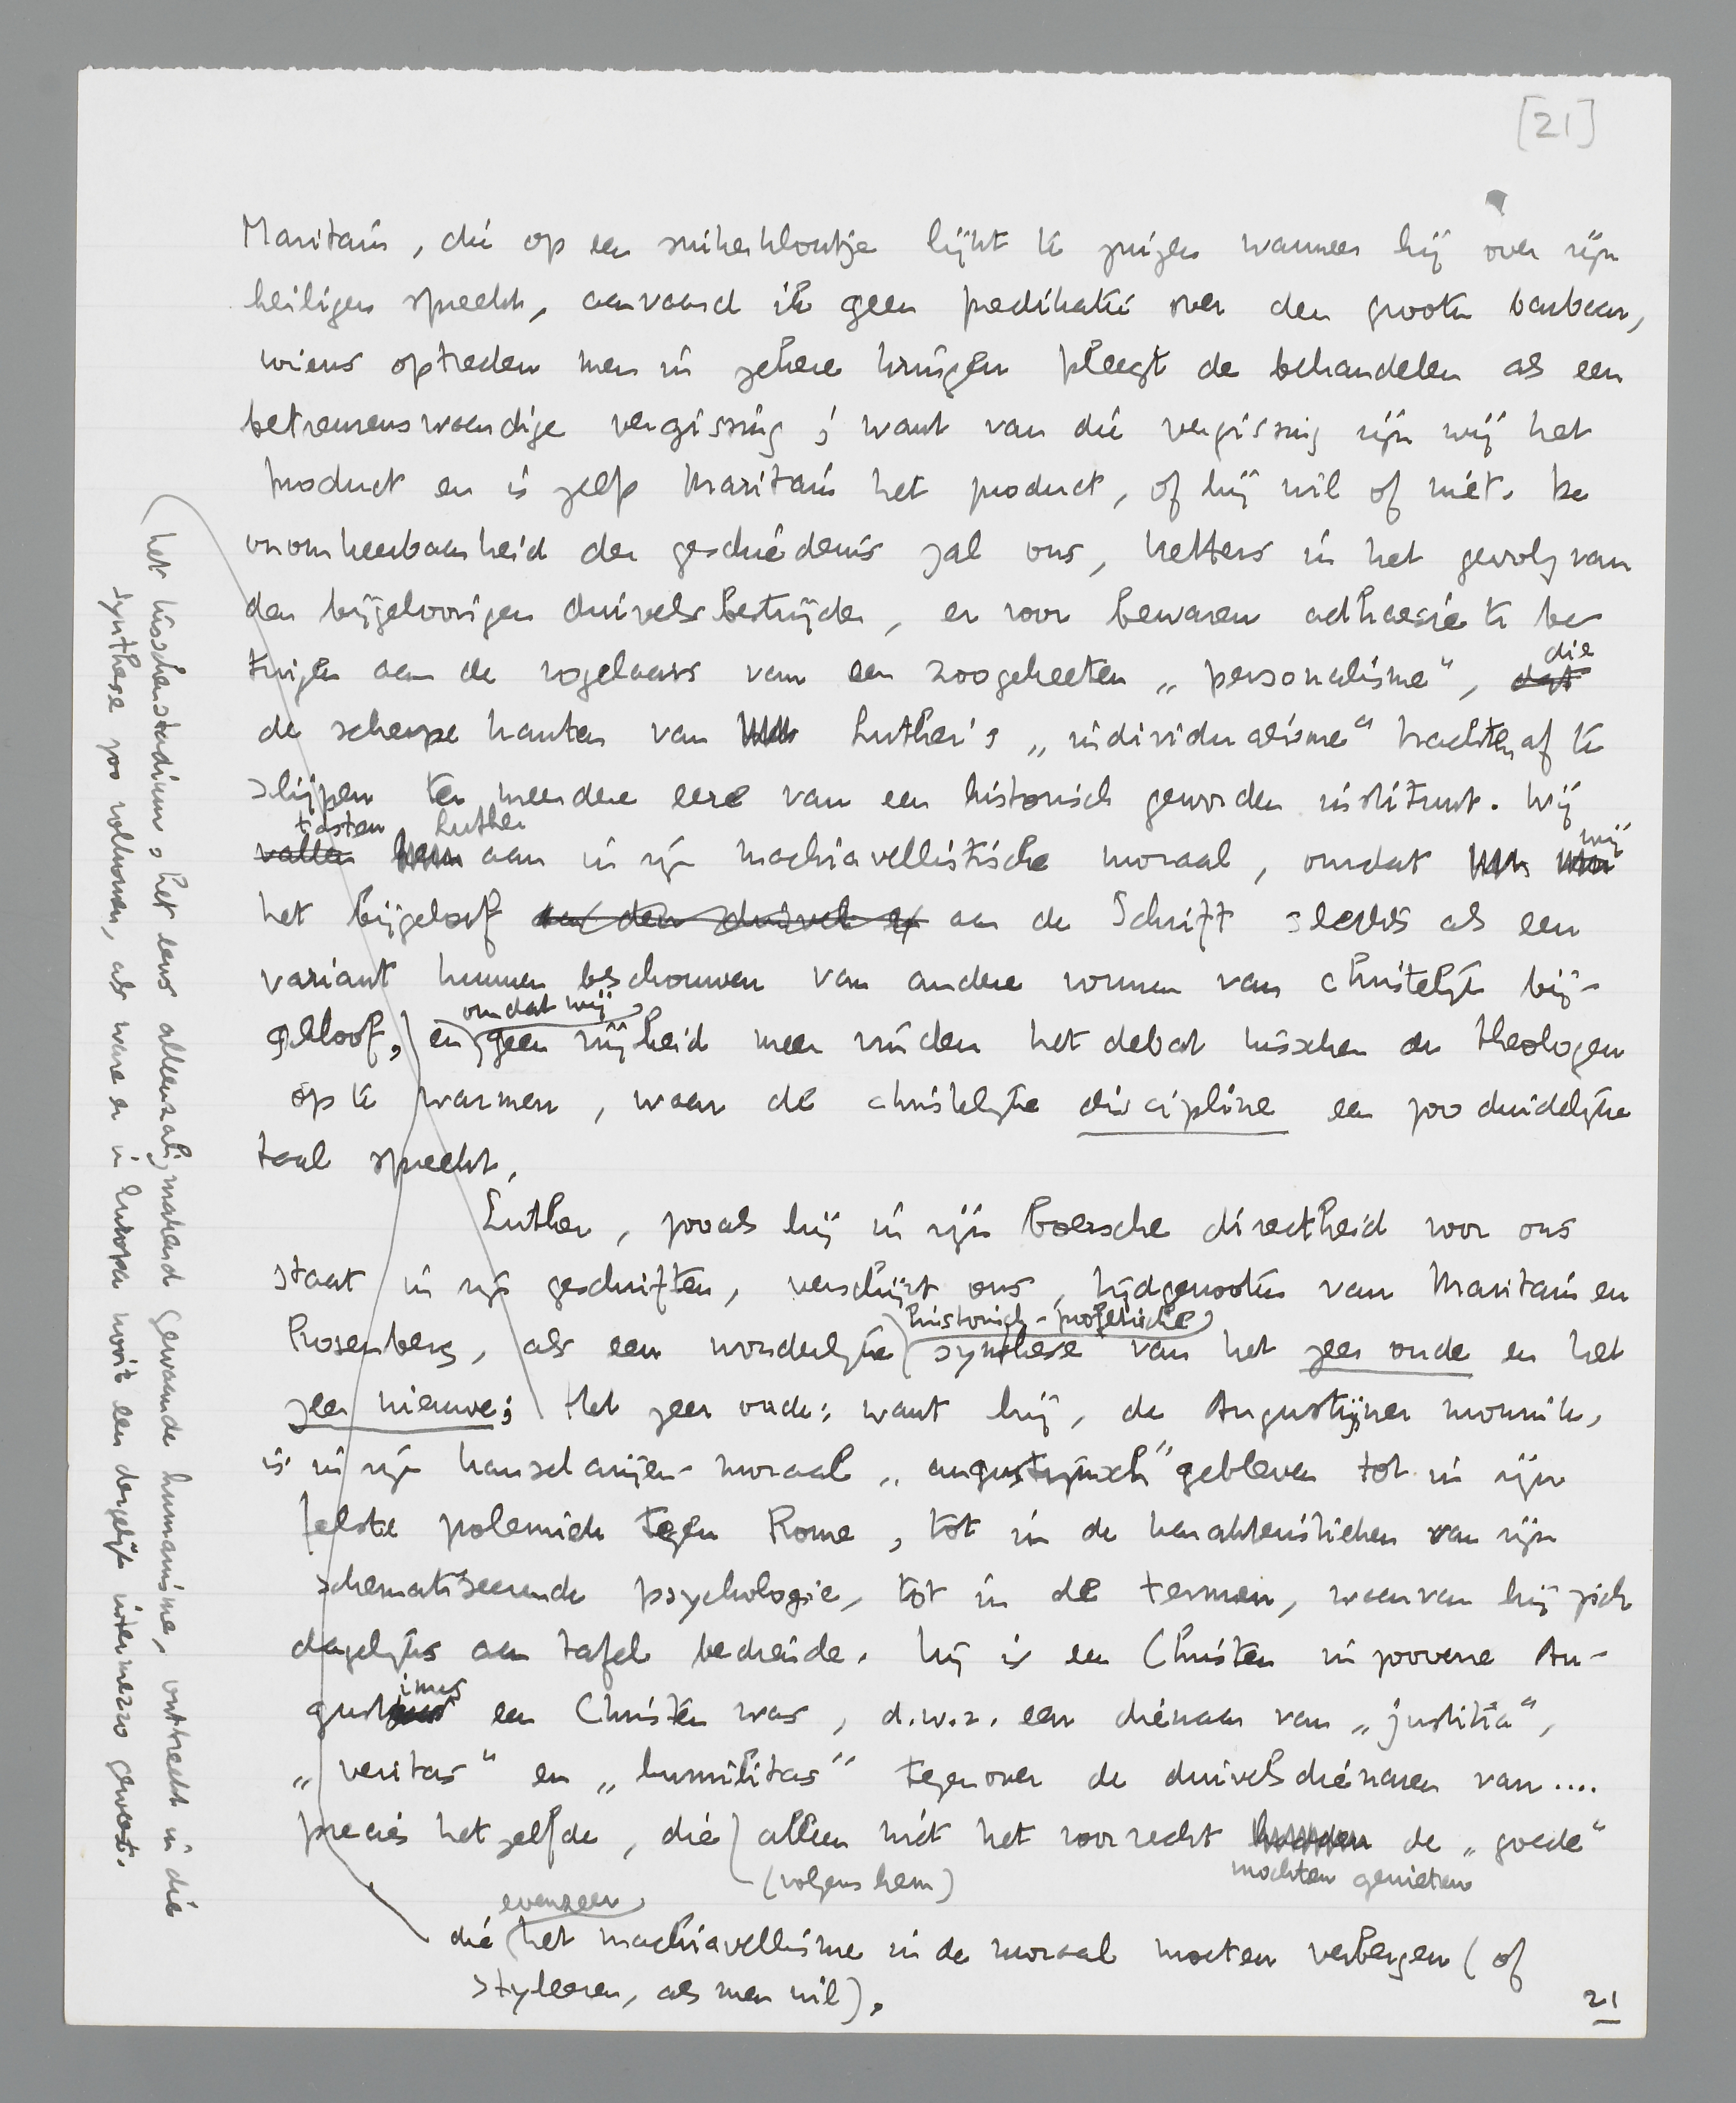 [21]
Maritain, die op een suikerklontje lijkt te zuigen wanneer hij over zijn
heiligen spreekt, aanvaard ik geen predikatie over den grooten barbaar,
wiens optreden men in zekere kringen pleegt de behandelen als een
betreurenswaardige vergissing; want van die vergissing zijn wij het
product en is zelfs Maritain het product, of hij wil of niet. De
onomkeerbaarheid der geschiedenis zal ons, ketters in het gevolg van
den bijgeloovigen duivelsbestrijder, er voor bewaren adhaesie te be-
tuigen aan de vogelaars van een zoogeheeten „personalisme", dat die
de scherpe kanten van Luther's „individualisme" trachten af te
slijpen ter meerdere eere van een historisch geworden instituut. Wij
vallen tasten hem Luther aan in zijn machiavellistische moraal, omdat wij
het bijgeloof aan den duivel en aan de Schrift slechts als een
variant kunnen beschouwen van andere vormen van christelijk bij-
geloof, en omdat wij geen vrijheid meer vinden het debat tusschen de theologen
op te warmen, waar de christelijke discipline een zoo duidelijke
taal spreekt.
Luther, zooals hij in zijn boersche directheid voor ons
staat in zijn geschriften, verschijnt ons, tijdgenooten van Maritain en
Rosenberg, als een wonderlijke historisch-profetische synthese van het zeer oude en het
zeer nieuwe; Het zeer oude: want hij, de Augustijner monnik,
is in zijn kanselarijen-moraal „augustijnsch" gebleven tot in zijn
felste polemiek tegen Rome, tot in de karakteristieken van zijn
schematiseerende psychologie, tot in de termen, waarvan hij zich
dagelijks aan tafel bediende. Hij is een Christen in zooverre Au-
gustinus een Christen was, d.w.z. een dienaar van „justitia",
„veritas" en „humilitas" tegenover de duivelsdienaren van....
precies hetzelfde, die alleen (volgens hem) niet het voorrecht hadden mochten genieten de „goede"
die evenzeer het machiavellisme in de moraal moeten verbergen (of
styleeren, als men wil).
21
het tusschenstadium, het eens alleenzaligmakend gewaande humanisme, ontbreekt in die
synthese zoo volkomen, als ware er in Europa nooit een dergelijk intermezzo geweest.